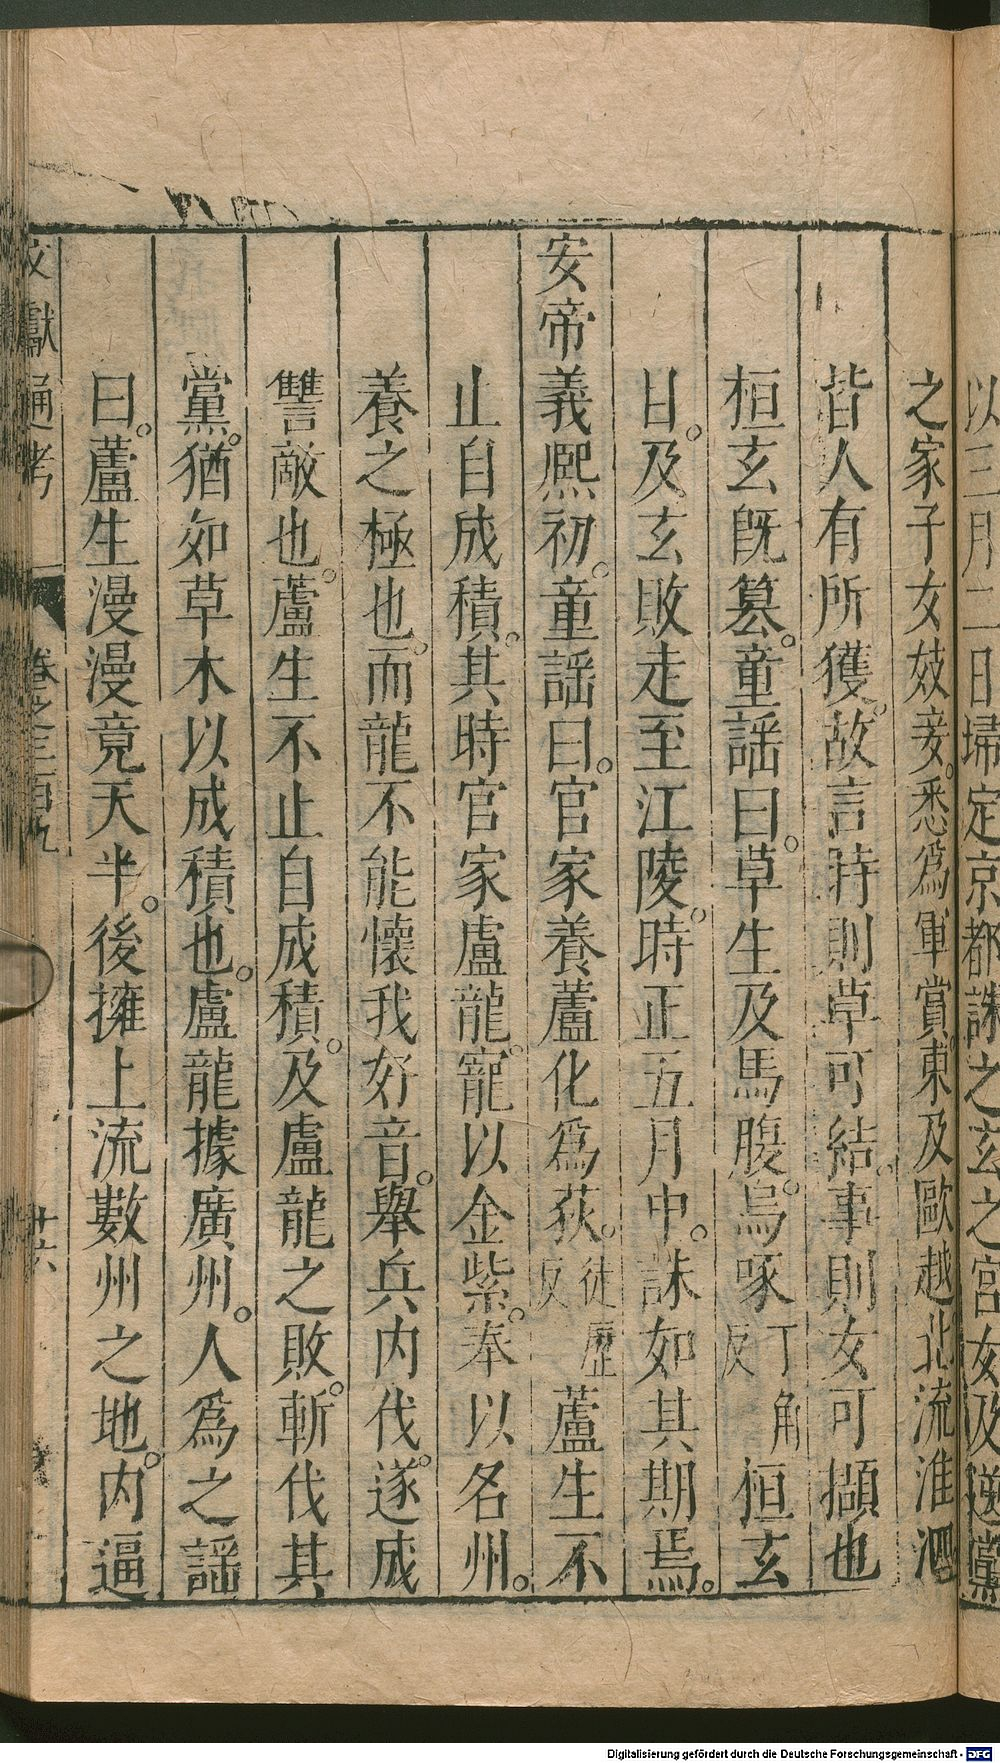 以三月二日埽定京都誅之玄之宮女及逆黨
之家子女妓妾。悉爲軍賞。東及歐越北流淮泗
皆人有所獲。故言時則草可結。事則女可擷也
桓玄旣篡。童謡曰。草生及馬腹。烏啄丁角反桓玄
目。及玄敗走至江陵。時正五月中。誅如其期焉。
安帝義熙初。童謡曰。官家養蘆化爲荻。徒歷反蘆生不
止自成積。其時官家盧龍。寵以金紫。奉以名州。
養之極也。而龍不能懷我好音。舉兵內伐。遂成
讐敵也。蘆生不止自成積。及盧龍之敗。斬伐其
黨。猶如草木以成積也。盧龍據廣州。人爲之謡
曰。蘆生漫漫竟天半。後擁上流數州之地。內逼
文獻通考 卷之三百九 廿六
Digitalisierung gefördert durch die Deutsche Forschungsgemeinschaft - DFG